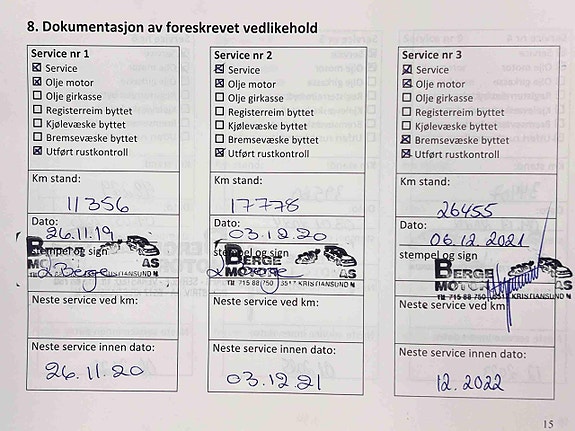 8. Dokumentasjon av foreskrevet vedlikehold
Service nr 1
Service
Olje motor
Olje girkasse
Registerreim byttet
Kjølevæske byttet
Bremsevæske byttet
Utført rustkontroll
Km stand:
11356
Dato:
26.11.19
stempel og sign
BERGE
MOTOR AS
Tlf 715 88 750 KRISTIANSUND N
Neste service ved km:
Neste service innen dato:
26.11.20
Service nr 2
Service
Olje motor
Olje girkasse
Registerreim byttet
Kjølevæske byttet
Bremsevæske byttet
Utført rustkontroll
Km stand:
17778
Dato:
03.12.20
stempel og sign
BERGE
MOTOR AS
Tlf 715 88 750 6517 KRISTIANSUND N
Neste service ved km:
Neste service innen dato:
03.12.21
Service nr 3
Service
Olje motor
Olje girkasse
Registerreim byttet
Kjølevæske byttet
Bremsevæske byttet
Utført rustkontroll
Km stand:
26455
Dato:
06.12.2021
stempel og sign
BERGE
MOTOR AS
Tlf 715 88 750 KRISTIANSUND N
Neste service ved km:
Neste service innen dato:
12.2022
15